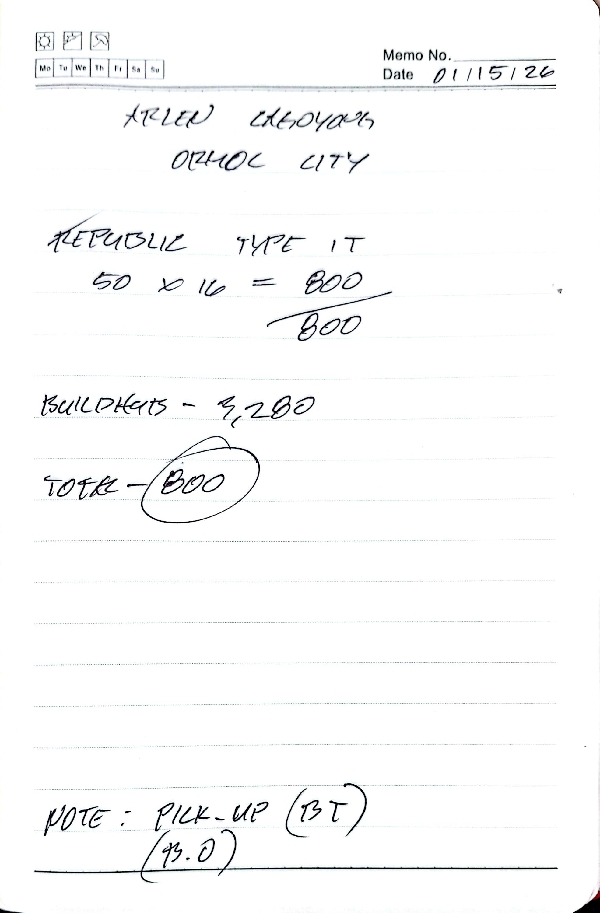 Mo Tu We Th Fr Sa Su
Memo No.
Date 01/15/26
ARLEN
ORMOC CITY
REPUBLIC TYPE 1T
50 x 16 = 800
800
- 3,280
TOTAL - 800
NOTE: PICK-UP (BT)
(B.O)